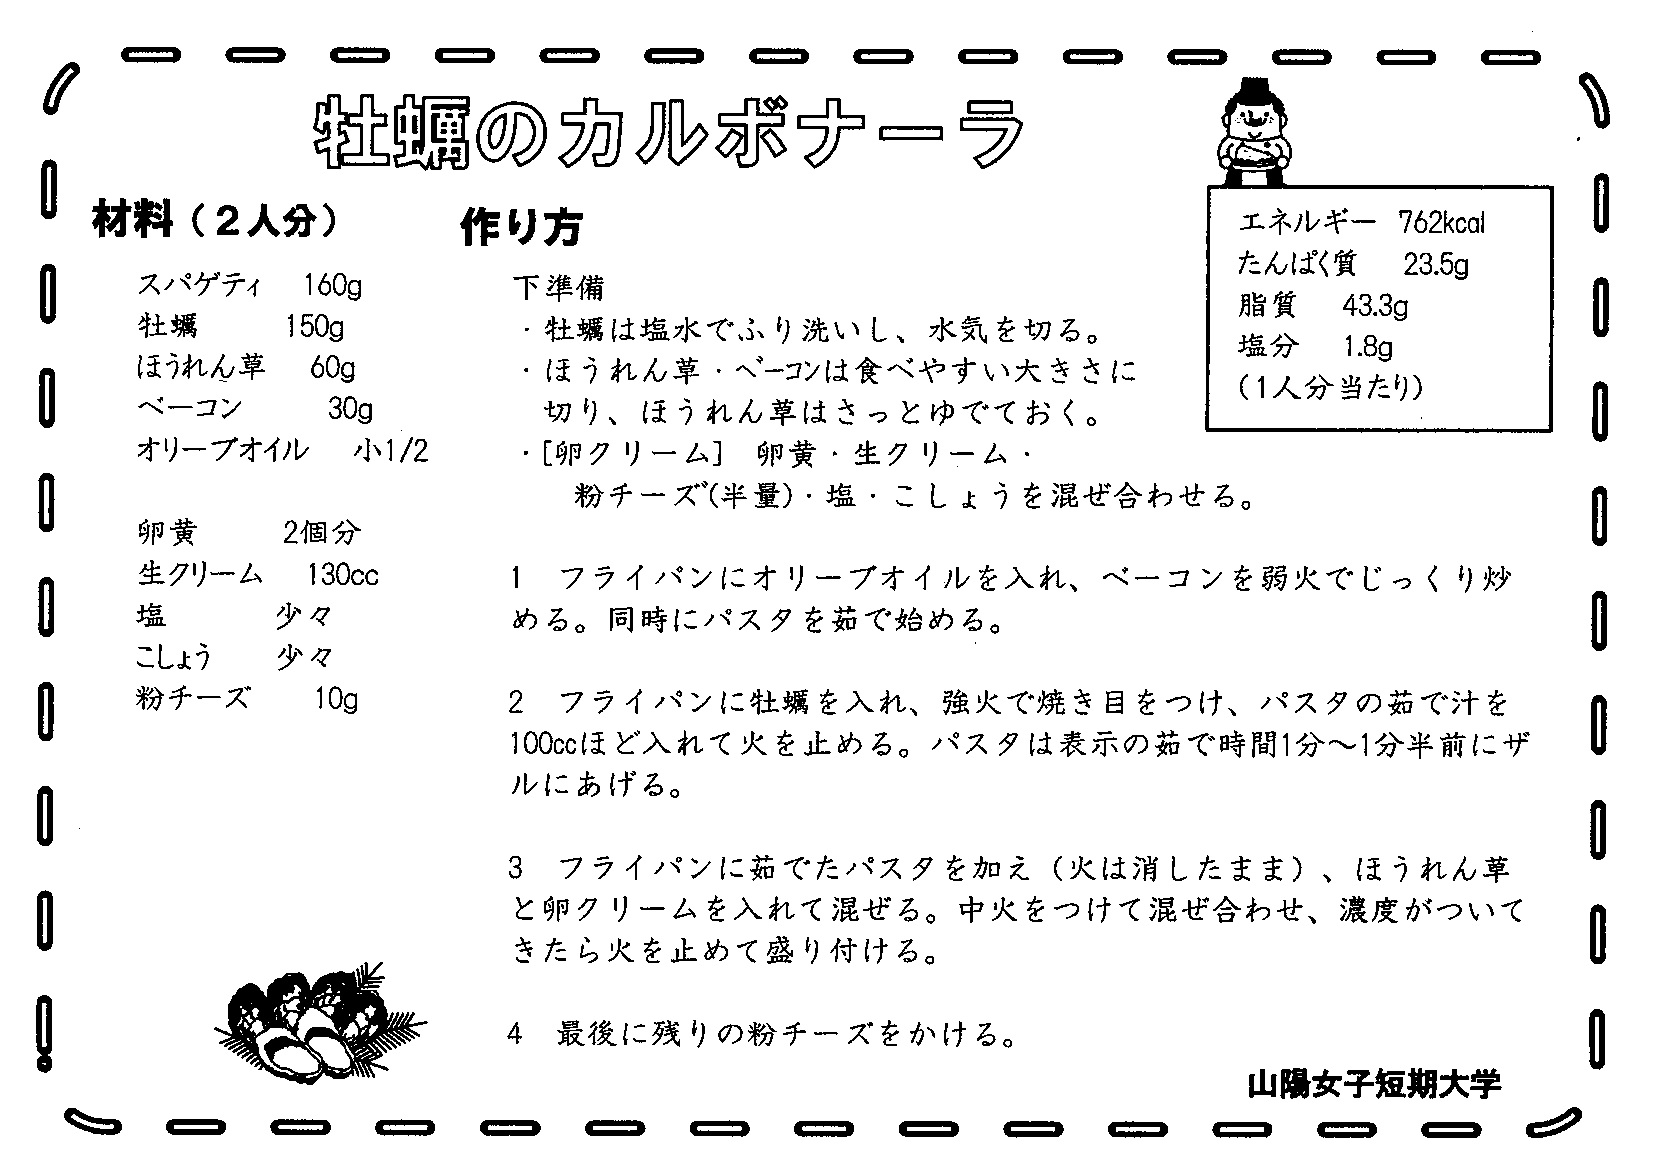 牡蠣のカルボナーラ
材料（２人分）
スパゲティ　160g
牡蠣　150g
ほうれん草　60g
ベーコン　30g
オリーブオイル　小1/2
卵黄　2個分
生クリーム　130cc
塩　少々
こしょう　少々
粉チーズ　10g
作り方
下準備
・牡蠣は塩水でふり洗いし、水気を切る。
・ほうれん草・ベーコンは食べやすい大きさに
切り、ほうれん草はさっとゆでておく。
・[卵クリーム]　卵黄・生クリーム・
粉チーズ(半量)・塩・こしょうを混ぜ合わせる。
1　フライパンにオリーブオイルを入れ、ベーコンを弱火でじっくり炒
める。同時にパスタを茹で始める。
2　フライパンに牡蠣を入れ、強火で焼き目をつけ、パスタの茹で汁を
100ccほど入れて火を止める。パスタは表示の茹で時間1分～1分半前にザ
ルにあげる。
3　フライパンに茹でたパスタを加え（火は消したまま）、ほうれん草
と卵クリームを入れて混ぜる。中火をつけて混ぜ合わせ、濃度がついて
きたら火を止めて盛り付ける。
4　最後に残りの粉チーズをかける。
エネルギー　762kcal
たんぱく質　23.5g
脂質　43.3g
塩分　1.8g
（1人分当たり）
山陽女子短期大学